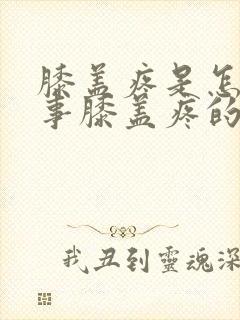 膝盖疼是怎
事膝盖疼的
我丑到靈魂深